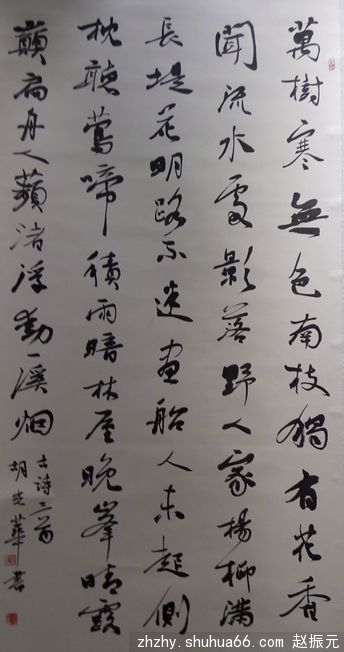 萬樹寒無色南枝獨有花香
聞流水處影落野人家楊柳滿
長堤花明路不迷畫船人未起側
枕聽鶯啼積雨暗林屋晚峯晴露
巔扁舟入蘋渚浮動一溪烟
古诗三首
胡光華書
zhzhy.shuhua66.com 赵振元